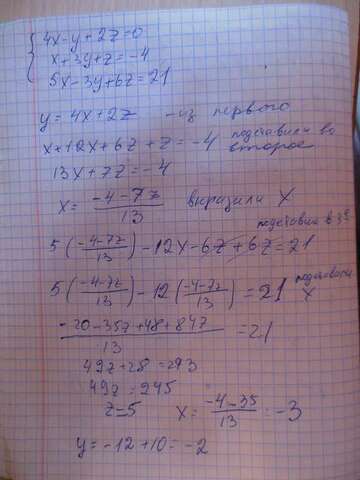 4x-y+2z=0
x+3y+z=-4
5x-3y+6z=21
y=4x+2z - из первого
x+12x+6z+z=-4 подставили во второе
13x+7z=-4
x= (-4-7z)/13 выразили x
подставим в 3е
5(-4-7z/13)-12x-6z+6z=21
5(-4-7z/13)-12(-4-7z/13)=21 подставили x
(-20-35z+48+84z)/13=21
49z+28=293
49z=245
z=5 x=(-4-35)/13=-3
y=-12+10=-2